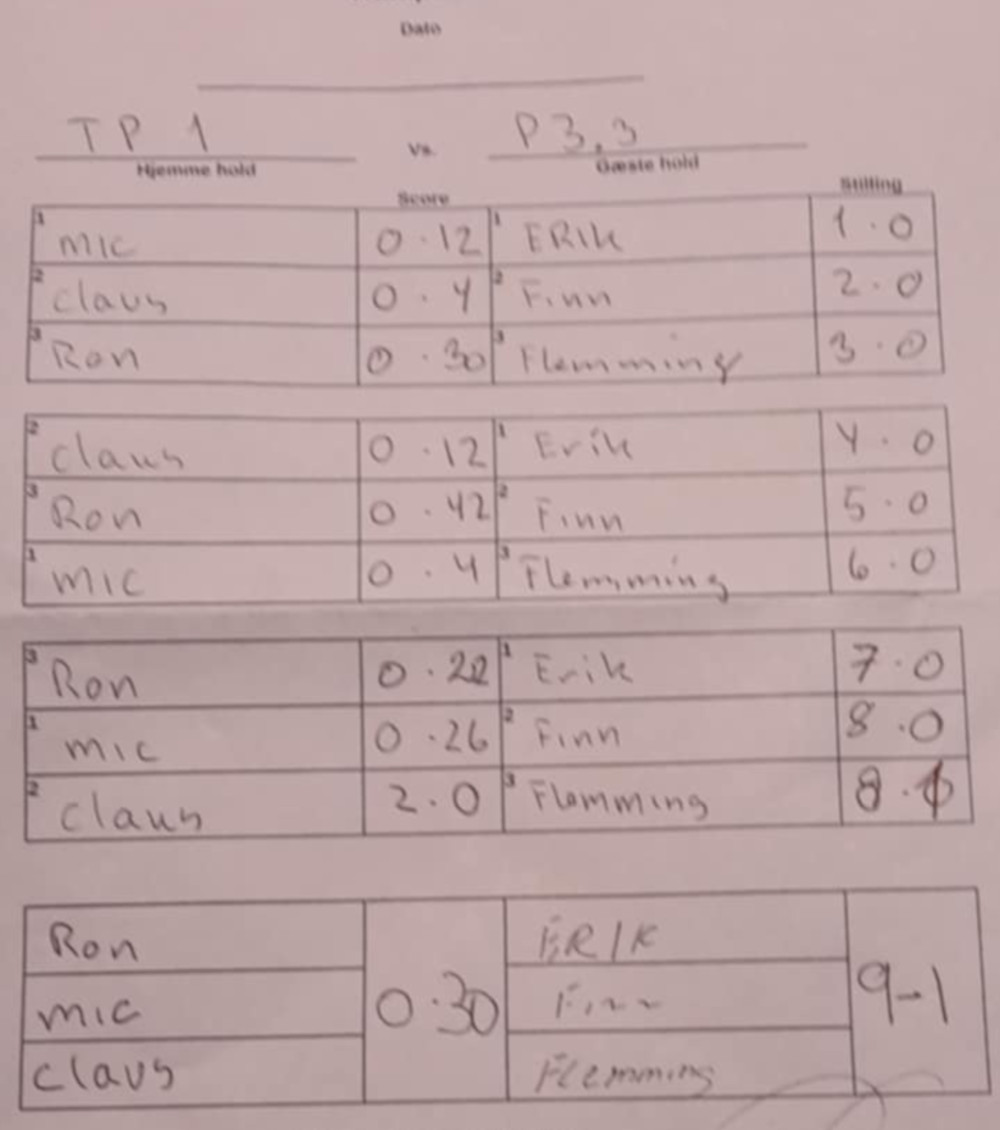 Dato
TP 1 Vs. P3,3
Hjemme hold Gæste hold
Score Stilling
1 mic 0.12 1 ERIK 1.0
2 claus 0.4 2 Finn 2.0
3 Ron 0.30 3 Flemming 3.0
2 claus 0.12 1 Erik 4.0
3 Ron 0.42 2 Finn 5.0
1 mic 0.4 3 Flemming 6.0
3 Ron 0.22 1 Erik 7.0
1 mic 0.26 2 Finn 8.0
2 claus 2.0 3 Flemming 8.1
Ron ERIK
mic 0.30 Finn 9-1
claus Flemming